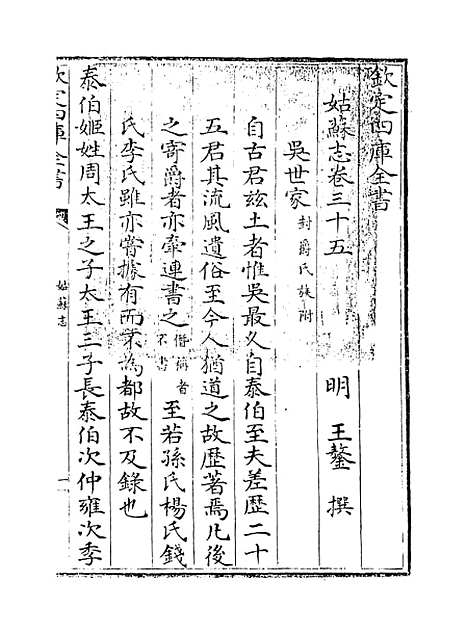 欽定四庫全書
姑蘇志卷三十五　明　王鏊　撰
吳世家封爵氏族附
自古君兹土者惟吳最乆自泰伯至夫差歴二十
五君其流風遺俗至今人猶道之故歴著焉凡後
之寄爵者亦牽連書之僭竊者不書至若孫氏楊氏錢
氏李氏雖亦嘗據有而業為都故不及錄也
泰伯姬姓周太王之子太王三子長泰伯次仲雍次季
欽定四庫全書
姑蘇志
一